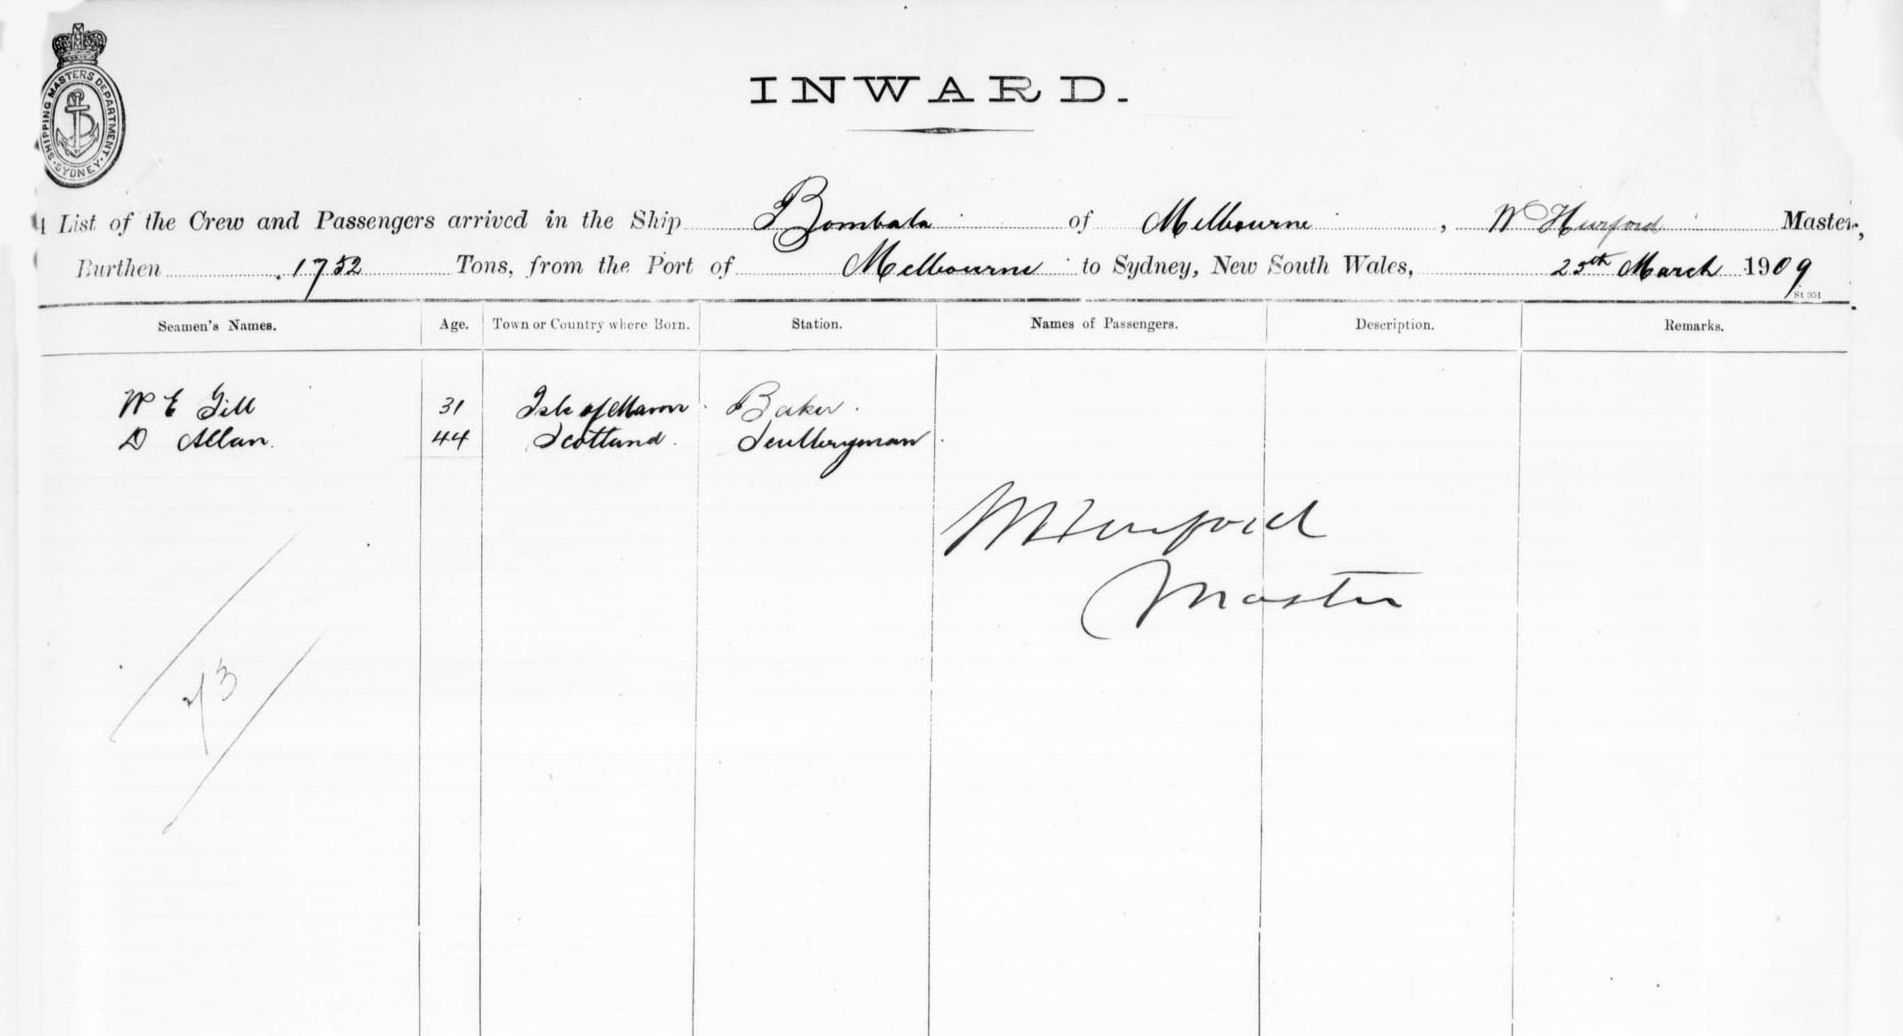 SHIPPING MASTERS DEPARTMENT. SYDNEY
INWARD.
A List of the Crew and Passengers arrived in the Ship Bombala of Melbourne, W Hurford Master,
Burthen 1752 Tons, from the Port of Melbourne to Sydney, New South Wales, 25th March 1909
St 951
Seamen's Names. Age. Town or Country where Born. Station. Names of Passengers. Description. Remarks.
W E Gill 31 Isle of Mann Baker.
D Allan. 44 Scotland. Sculleryman.
W Hurford
Master
73